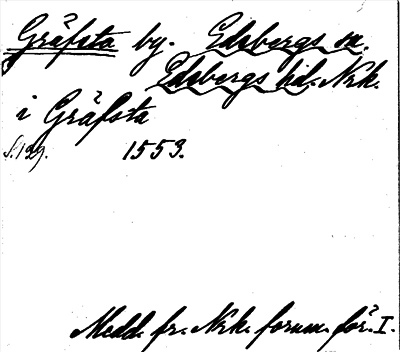 Gräfsta by. Edsbergs sn.
Edsbergs hd. Nrk.
i Gräfsta
s. 129. 1553.
Medd. fr. Nrk. fornm. för. I.